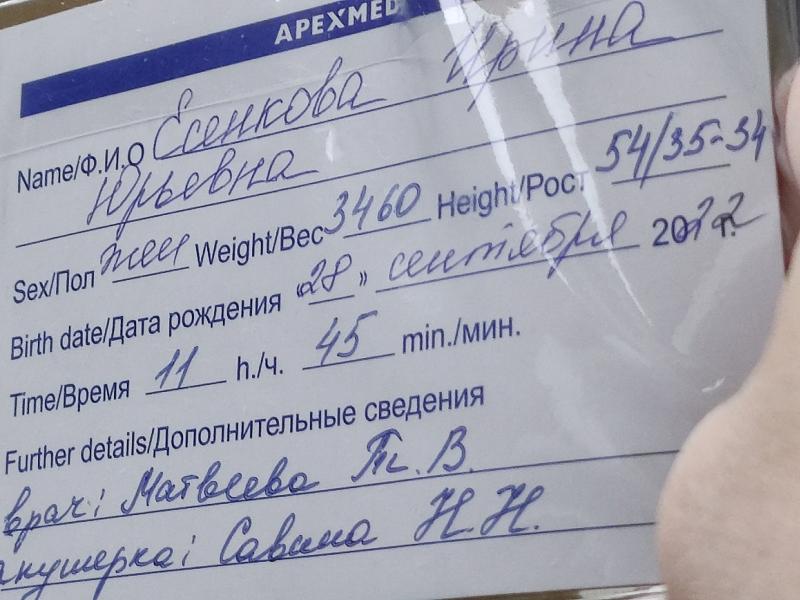 APEXMED
Name/Ф.И.О Есенкова Ирина
Юрьевна
Sex/Пол жен Weight/Вес 3460 Height/Рост 54/35-34
Birth date/Дата рождения «28» сентября 2022 г.
Time/Время 11 h./ч. 45 min./мин.
Further details/Дополнительные сведения
врач: Матвеева Т. В.
акушерка: Савина Н.Н.